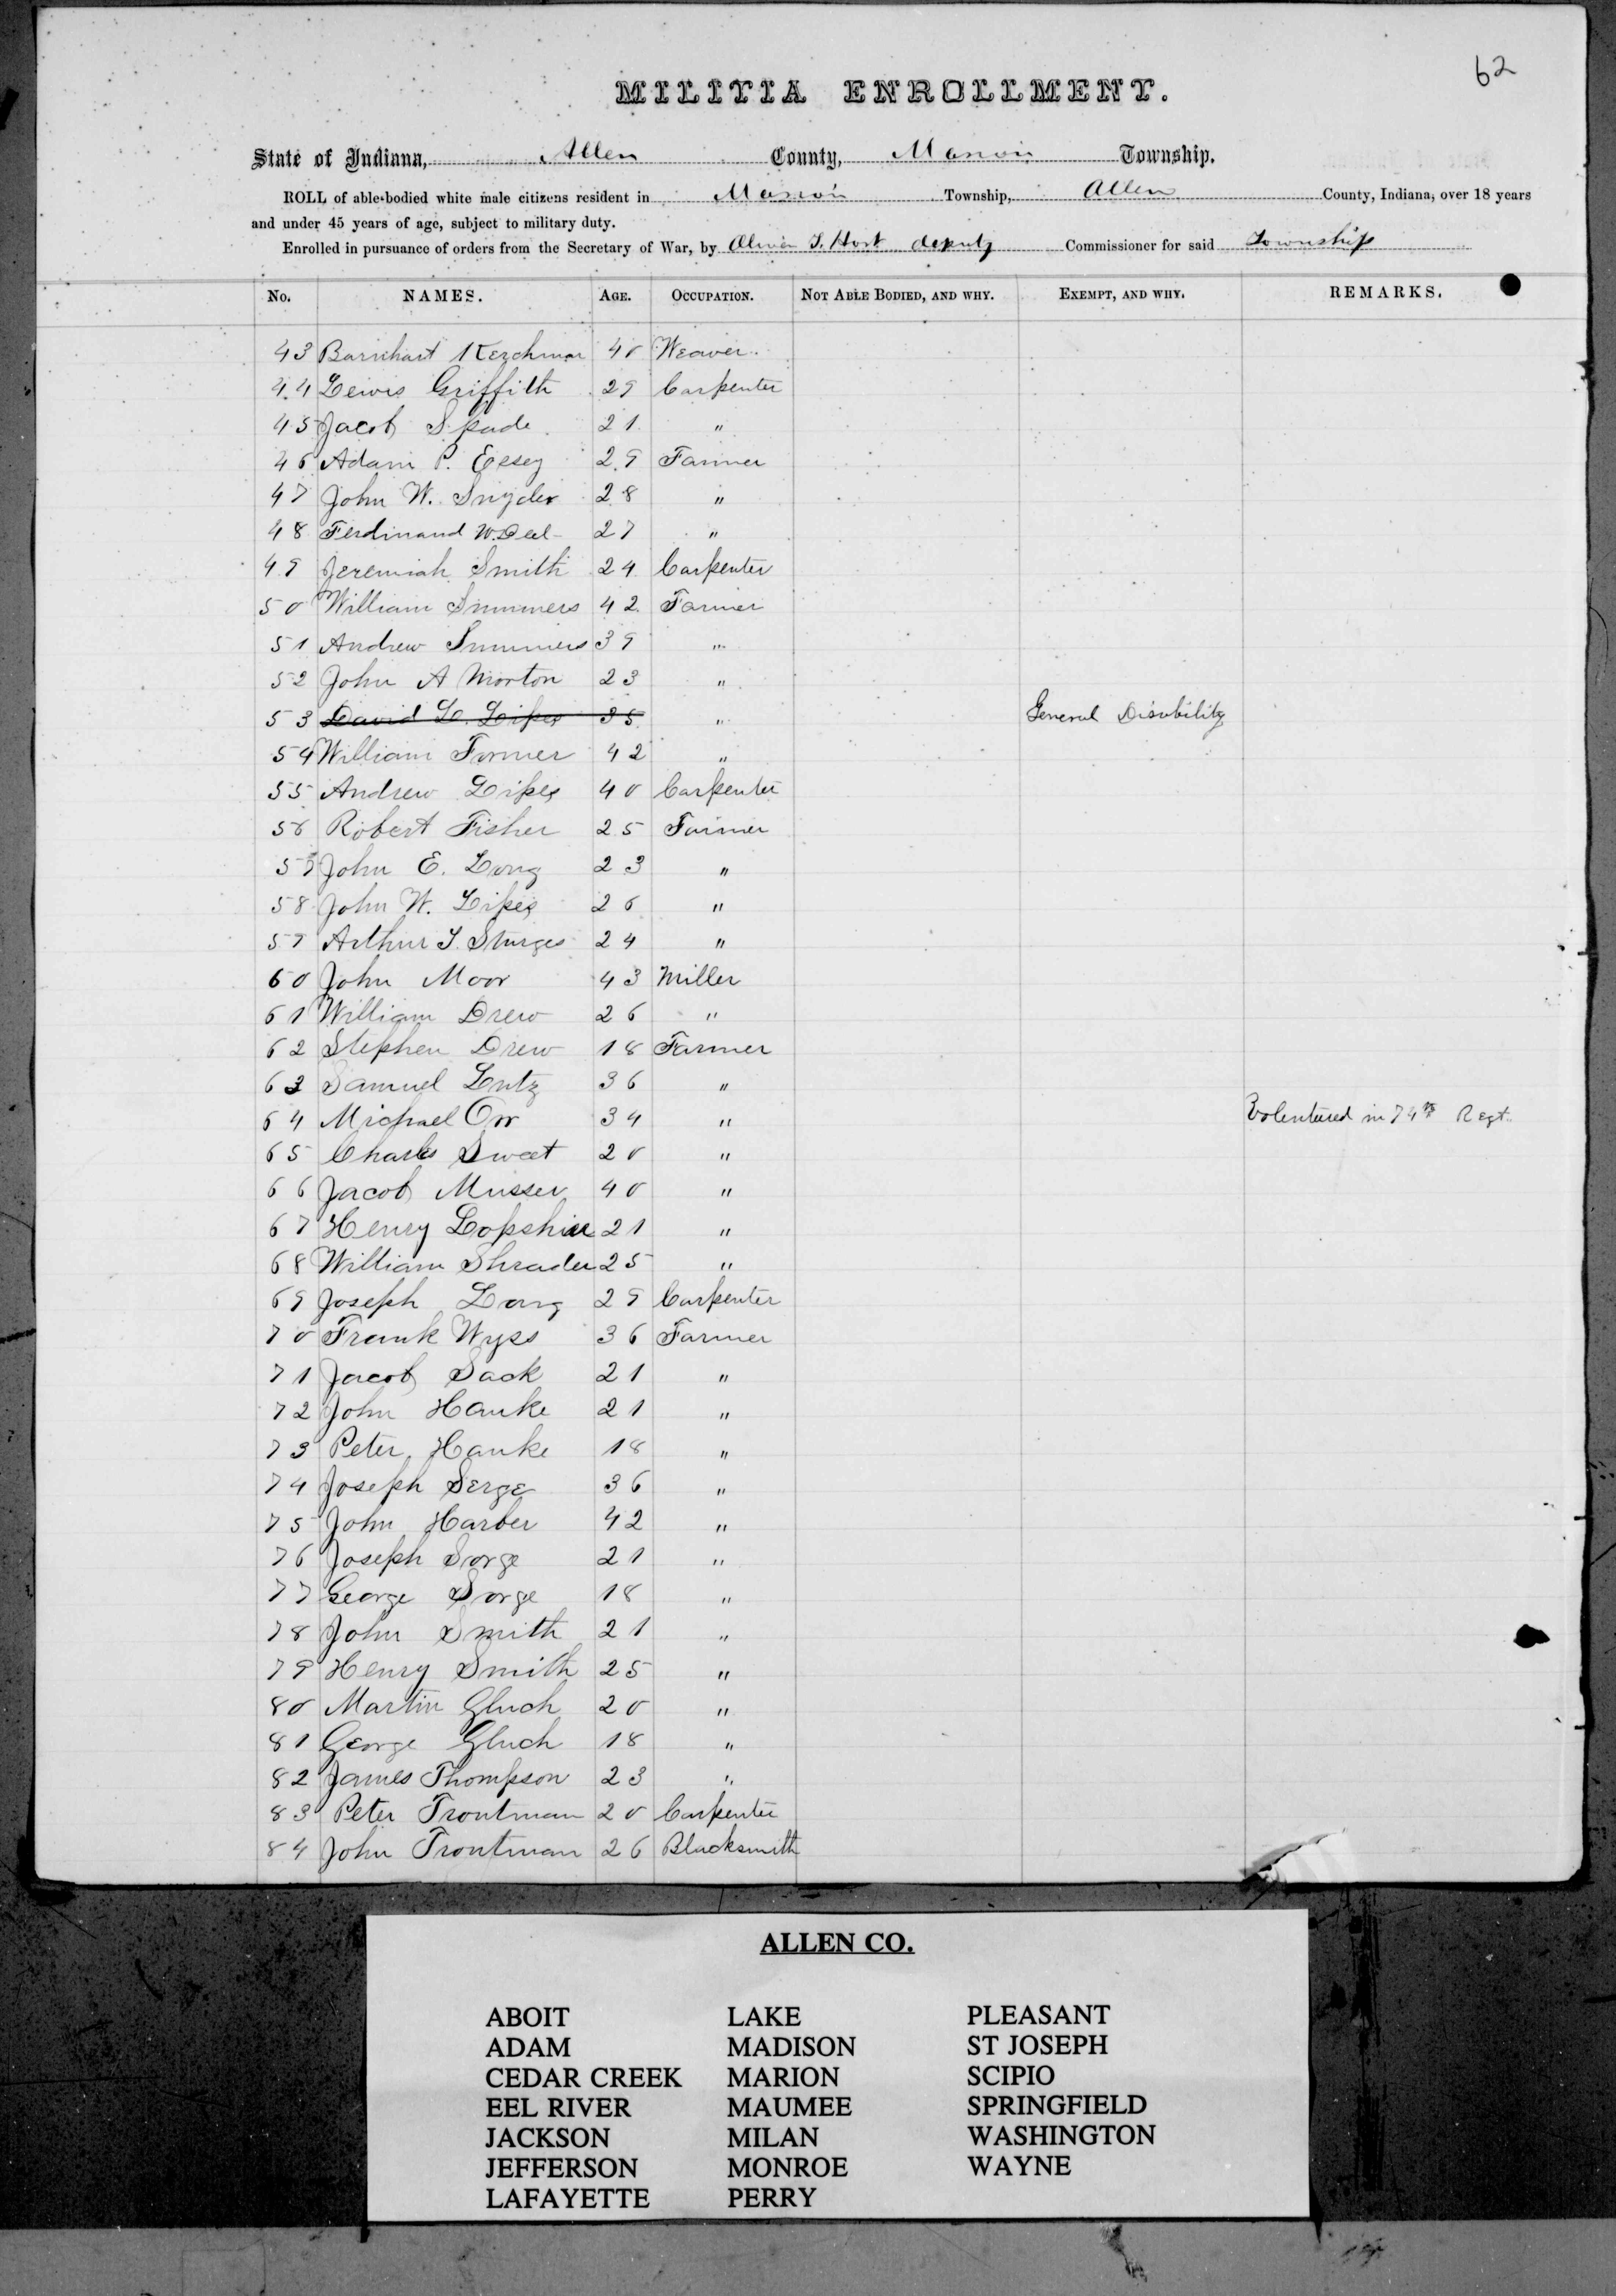 62
MILITIA ENROLLMENT.
State of Indiana, Allen County, Marion Township.
ROLL of able-bodied white male citizens resident in Marion Township, Allen County, Indiana, over 18 years
and under 45 years of age, subject to military duty.
Enrolled in pursuance of orders from the Secretary of War, by Oliver S. Hart deputy Commissioner for said Township
No. NAMES. AGE. OCCUPATION. NOT ABLE BODIED, AND WHY. EXEMPT, AND WHY. REMARKS.
43 Barnhart 40 Weaver.
44 Lewis Griffith 29 Carpenter
45 Jacob Spade 21 "
46 Adam P. Essey 29 Farmer
47 John W. Snyder 28 "
48 Ferdinand W. Deel 27 "
49 Jeremiah Smith 24 Carpenter
50 William Summers 42 Farmer
51 Andrew Summers 39 "
52 John A Morton 23 "
53 David L. Lipes 35 " General Disability
54 William Former 42 "
55 Andrew Lipes 40 Carpenter
56 Robert Fisher 25 Farmer
57 John E. Long 23 "
58 John W. Lipes 26 "
59 Arthur S. Sturges 24 "
60 John Moor 43 Miller
61 William Drew 26 "
62 Stephen Drew 18 Farmer
63 Samuel Lutz 36 "
64 Michael Orr 34 " Volentured in 74th Regt.
65 Charles Sweet 20 "
66 Jacob Musser 40 "
67 Henry Lopshire 21 "
68 William Shrader 25 "
69 Joseph Long 29 Carpenter
70 Frank Wyss 36 Farmer
71 Jacob Sack 21 "
72 John Hanke 21 "
73 Peter Hanke 18 "
74 Joseph Serge 36 "
75 John Harber 42 "
76 Joseph Sorge 21 "
77 George Sorge 18 "
78 John Smith 21 "
79 Henry Smith 25 "
80 Martin Gluch 20 "
81 George Gluch 18 "
82 James Thompson 23 "
83 Peter Troutman 20 Carpenter
84 John Troutman 26 Blacksmith
ALLEN CO.
ABOIT LAKE PLEASANT
ADAM MADISON ST JOSEPH
CEDAR CREEK MARION SCIPIO
EEL RIVER MAUMEE SPRINGFIELD
JACKSON MILAN WASHINGTON
JEFFERSON MONROE WAYNE
LAFAYETTE PERRY